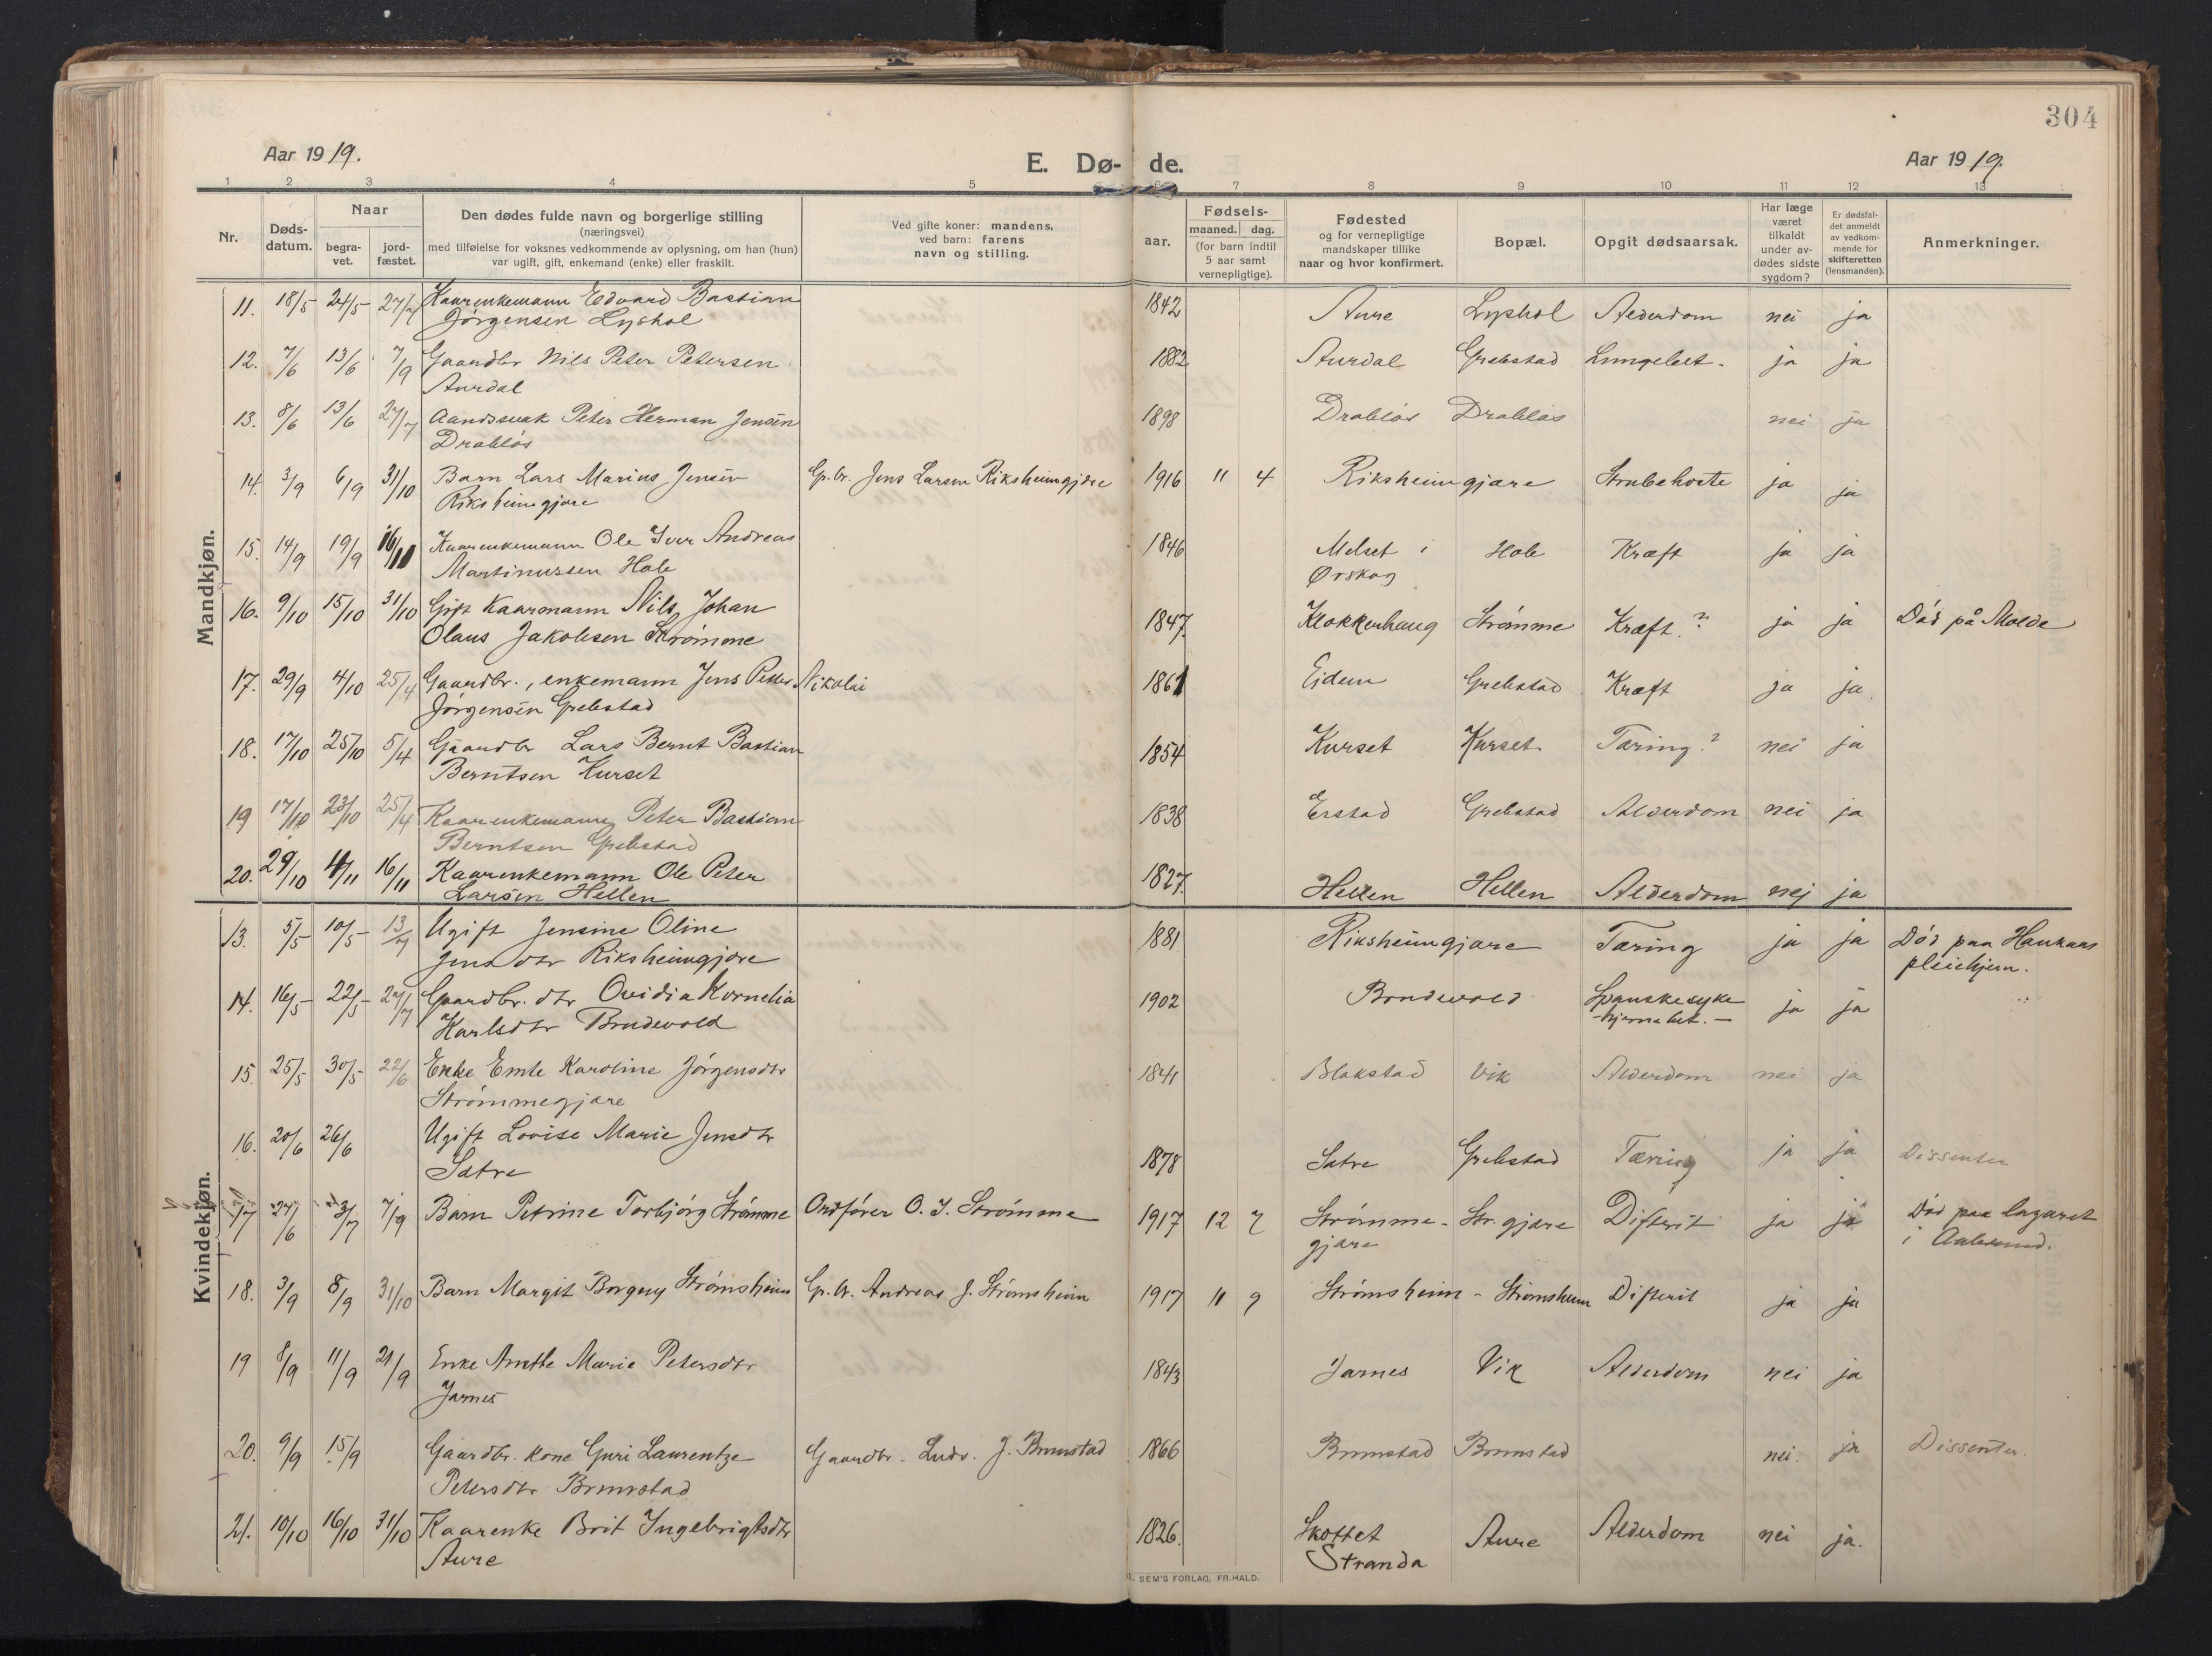 304
Aar 1919.
E. Dø- de.
Aar 1919.
1 2 3 4 5 6 7 8 9 10 11 12 13
Nr.
Døds-
datum.
Naar
begra-
vet.
jord-
fæstet.
Den dødes fulde navn og borgerlige stilling
(næringsvei)
med tilføielse for voksnes vedkommende av oplysning, om han (hun)
var ugift, gift, enkemand (enke) eller fraskilt.
Ved gifte koner: mandens,
ved barn: farens
navn og stilling.
aar.
Fødsels-
maaned. dag.
(for barn indtil
5 aar samt
vernepligtige).
Fødested
og for vernepligtige
mandskaper tillike
naar og hvor konfirmert.
Bopæl.
Opgit dødsaarsak.
Har læge
været
tilkaldt
under av-
dødes sidste
sygdom?
Er dødsfal-
det anmeldt
av vedkom-
mende for
skifteretten
(lensmanden).
Anmerkninger.
Mandkjøn.
11. 18/5 24/5 27/7 Kaarenkemann Edvard Bastian 1842 Aure Lyshol Alderdom nei ja
Jørgensen Lyshol
12. 7/6 13/6 7/9 Gaardbr Nils Peter Petersen 1882 Aurdal Grebstad Lungebet. ja ja
Aurdal
13. 8/6 13/6 27/7 Aandssvak Peter Herman Jensen 1898 Drabløs Drabløs nei ja
Drabløs
14. 3/9 6/9 31/10 Barn Lars Marius Jensen G.br. Jens Larsen Riksheimgjære 1916 11 4 Riksheimgjære Strubehoste ja ja
Riksheimgjære
15. 14/9 19/9 16/11 Kaarenkemann Ole Iver Andreas 1846 Melset i Hole Kræft ja ja
Martinussen Hole Ørskog
16. 9/10 15/10 31/10 Gift Kaarmann Nils Johan 1847. Klokkerhaug Strømme Kræft.? ja ja Død på Molde
Olaus Jakobsen Strømme
17. 29/9 4/10 25/4 Gaardbr., enkemann Jens Petter Nikolai 1861 Eidem Grebstad Kræft ja ja.
Jørgensen Grebstad
18. 17/10 25/10 5/4 Gaardbr Lars Bernt Bastian 1854 Kurset Kurset Tæring? nei ja
Berntsen Kurset
19 17/10 23/10 25/4 Kaarenkemann Peter Bastian 1838 Erstad Grebstad Alderdom nei ja
Berntsen Grebstad
20. 29/10 4/11 16/11 Kaarenkemann Ole Peter 1827. Hellen Hellen Alderdom nej ja
Larsen Hellen
Kvindekjøn.
13. 5/5 10/5 13/7 Ugift Jensine Oline 1881 Riksheimgjære Tæring ja ja Død paa Haukaas
Jensdtr Riksheimgjære pleiehjem.
14. 16/5 22/5 27/7 Gaardbr. dtr Ovidia Kornelia 1902 Brudevold Spanskesyke ja ja
Karlsdtr Brudevold -hjernebet.-
15. 25/5 30/5 22/6 Enke Emte Karoline Jørgensdtr 1841 Blakstad Vik Alderdom nei ja
Strømmegjære
16. 20/6 26/6 Ugift Lovise Marie Jensdtr
Sætre 1878 Sætre Grebstad Tæring ja ja Dissenter
17 27/6 3/7 7/9 Barn Petrine Torbjørg Strømme Ordfører O. J. Strømme 1917 12 7 Strømme- Str.gjære Difterit ja ja Død paa lazaret
gjære i Aalesund.
18. 3/9 8/9 31/10 Barn Margit Borgny Strømsheim G.br. Andreas J. Strømsheim 1917 11 9 Strømsheim - Strømsheim Difterit ja ja
19 8/9 11/9 21/9 Enke Anethe Marie Petersdtr 1843 Jarnes Vik Alderdom nei ja
Jarnes
20. 9/9 15/9 Gaardbr. kone Guri Laurentze Gaardbr. Ludv. J. Brunstad 1866 Brunstad Brunstad nei. ja Dissenter.
Petersdtr Brunstad
21. 10/10 16/10 31/10 Kaarenke Brit Ingebrigtsdtr 1826. Skottet Aure Alderdom nei ja.
Aure Stranda
SEM'S FORLAG, FR.HALD.